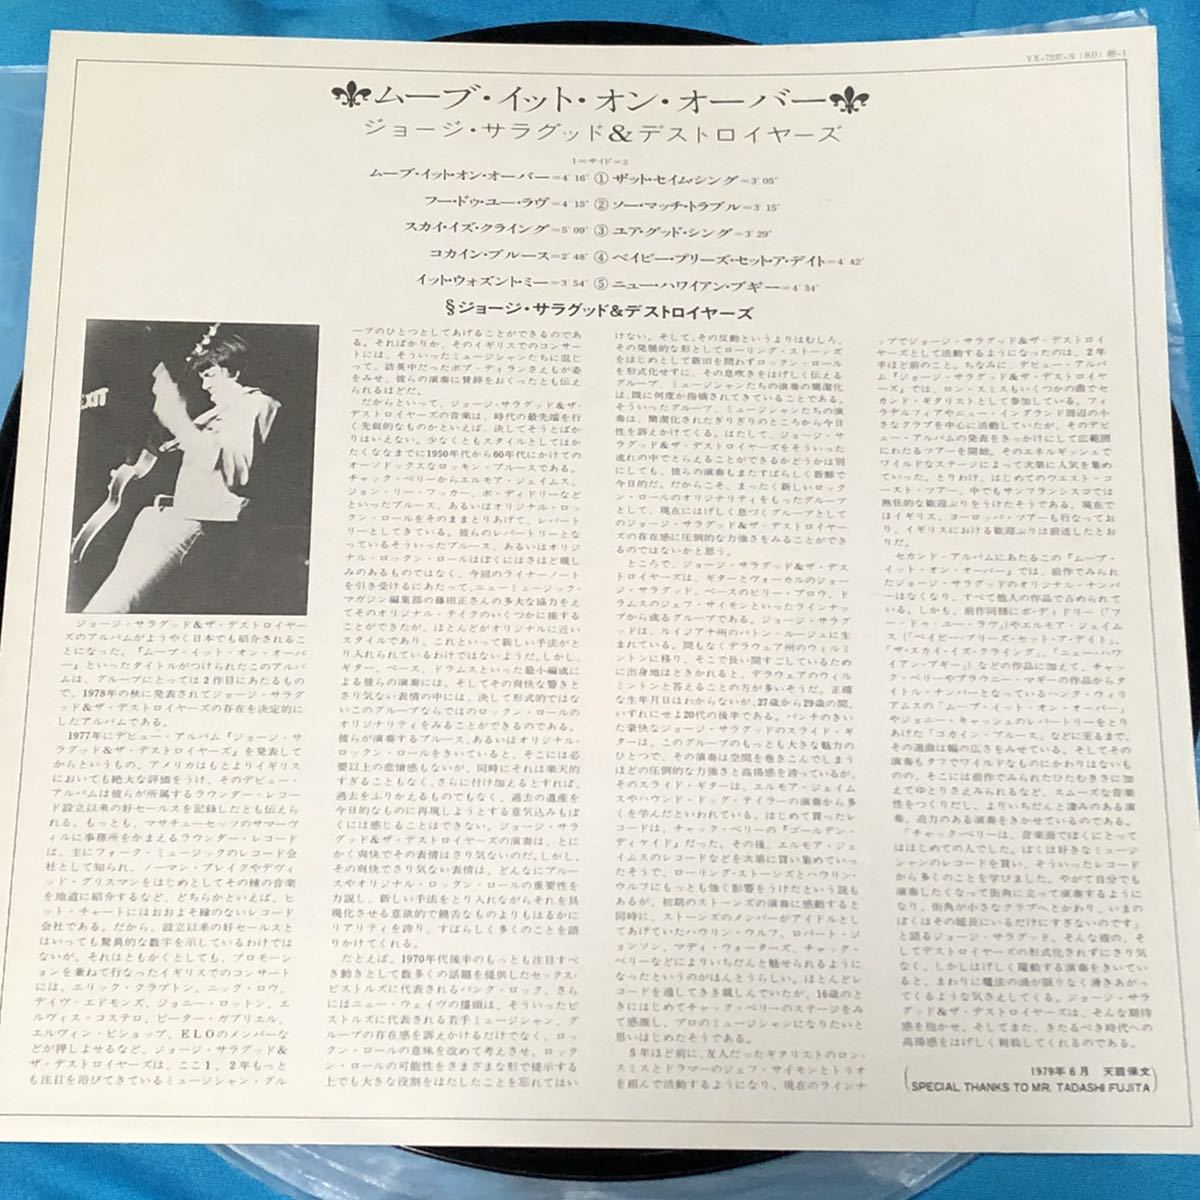 YX-7237-N (BD) ㊞-1
ムーブ・イット・オン・オーバー
ジョージ・サラグッド&デストロイヤーズ
1=サイド=2
ムーブ・イット・オン・オーバー=4′16″ ① ザット・セイム・シング=3′05″
フー・ドゥ・ユー・ラヴ=4′15″ ② ソー・マッチ・トラブル=3′15″
スカイ・イズ・クライング=5′09″ ③ ユア・グッド・シング=3′29″
コカイン・ブルース=2′48″ ④ ベイビー・プリーズ・セット・ア・デイト=4′42″
イット・ウォズント・ミー=3′54″ ⑤ ニュー・ハワイアン・ブギー=4′34″
§ジョージ・サラグッド&デストロイヤーズ
EXIT
ジョージ・サラグッド&ザ・デストロイヤー
ズのアルバムがようやく日本でも紹介されるこ
とになった。『ムーブ・イット・オン・オーバ
ー』といったタイトルがつけられたこのアルバ
ムは、グループにとっては2作目にあたるもの
で、1978年の秋に発表されてジョージ・サラグ
ッド&ザ・デストロイヤーズの存在を決定的に
したアルバムである。
1977年にデビュー・アルバム『ジョージ・サ
ラグッド&ザ・デストロイヤーズ』を発表して
からというもの、アメリカはもとよりイギリス
においても絶大な評価をうけ、そのデビュー・
アルバムは彼らが所属するラウンダー・レコー
ド設立以来の好セールスを記録したとも伝えら
れる。もっとも、マサチューセッツのサマーヴ
ィルに事務所をかまえるラウンダー・レコード
は、主にフォーク・ミュージックのレコード会
社として知られ、ノーマン・ブレイクやデヴィ
ッド・グリスマンをはじめとしてその種の音楽
を地道に紹介するなど、どちらかといえば、ヒ
ット・チャートにはおおよそ縁のないレコード
会社である。だから、設立以来の好セールスと
はいっても驚異的な数字を示しているわけでは
ないが、それはともかくとしても、プロモーシ
ョンを兼ねて行なったイギリスでのコンサート
には、エリック・クラプトン、ニック・ロウ、
デイヴ・エドモンズ、ジョニー・ロットン、エ
ルヴィス・コステロ、ピーター・ガブリエル、
エルヴィン・ビショップ、ELOのメンバーな
どが押しよせるなど、ジョージ・サラグッド&
ザ・デストロイヤーズは、ここ1、2年もっと
も注目を浴びてきているミュージシャン・グル
ープのひとつとしてあげることができるのであ
る。そればかりか、そのイギリスでのコンサー
トには、そういったミュージシャンたちに混じ
って、訪英中だったボブ・ディランさえもが姿
をみせ、彼らの演奏に賛辞をおくったとも伝え
られるほどだ。
だからといって、ジョージ・サラグッド&ザ・
デストロイヤーズの音楽は、時代の最先端を行
く先鋭的なものかといえば、決してそうとばか
りはいえない。少なくともスタイルとしてはか
たくななまでに1950年代から60年代にかけての
オーソドックスなロッキン・ブルースである。
チャック・ベリーからエルモア・ジェイムス、
ジョン・リー・フッカー、ボ・ディドリーなど
といったブルース、あるいはオリジナル・ロッ
クン・ロールをそのままとりあげて、レパート
リーとしてきている。彼らのレパートリーとな
っているそういったブルース、あるいはオリジ
ナル・ロックン・ロールはぼくにはさほど親し
みのあるものではなく、今回のライナーノート
を引き受けるにあたって、ニューミュージック・
マガジン編集部の藤田正さんの多大な協力をえ
てそのオリジナル・テイクのいくつかに接する
ことができたが、ほとんどがオリジナルに近い
スタイルであり、これといって新しい手法がと
り入れられているわけではないようだ。しかし、
ギター、ベース、ドラムスといった最小編成に
よる彼らの演奏には、そしてその爽快な響きと
さり気ない表情の中には、決して形式的ではな
いこのグループならではのロックン・ロールの
オリジナリティをみることができるのである。
彼らが演奏するブルース、あるいはオリジナル・
ロックン・ロールをきいていると、そこには必
要以上の悲愴感もないが、同時にそれは楽天的
すぎることもなく、さらに付け加えるとすれば、
過去をふりかえるものでもなく、過去の遺産を
今日的なものに再現しようとする意気込みもぼ
くには感じることはできない。ジョージ・サラ
グッド&ザ・デストロイヤーズの演奏は、とに
かく爽快でその表情はさり気ないのだ。しかし、
その爽快でさり気ない表情は、どんなにブルー
スやオリジナル・ロックン・ロールの重要性を
力説し、新しい手法をとり入れながらそれを具
現化させる意欲的で饒舌なものよりもはるかに
リアリティを誇り、すばらしく多くのことを語
りかけてくれる。
たとえば、1970年代後半のもっとも注目すべ
き動きとして数多くの話題を提供したセックス・
ピストルズに代表されるパンク・ロック、さら
にはニュー・ウェイヴの擡頭は、そういったピ
ストルズに代表される若手ミュージシャン、グ
ループの存在感を訴えかけるだけでなく、ロッ
クン・ロールの意味を改めて考えさせ、ロック
ン・ロールの可能性をさまざまな形で提示する
上でも大きな役割をはたしたことを忘れてはい
けない。そして、その反動というよりはむしろ、
その発展的な形としてローリング・ストーンズ
をはじめとして新旧を問わずロックン・ロール
を形式化せずに、その息吹きをはげしく伝える
グループ、ミュージシャンたちの演奏の簡潔化
は、既に何度か指摘されてきていることである。
そういったグループ、ミュージシャンたちの演
奏は、簡潔化されたぎりぎりのところから今日
性を訴えかけてくる。はたして、ジョージ・サ
ラグッド&ザ・デストロイヤーズをそういった
流れの中でとらえることができるかどうかは別
にしても、彼らの演奏もまたすばらしく新鮮で
今日的だ。だからこそ、まったく新しいロック
ン・ロールのオリジナリティをもったグループ
として、現在にはげしく息づくグループとして
のジョージ・サラグッド&ザ・デストロイヤー
ズの存在感に圧倒的な力強さをみることができ
るのではないかと思う。
ところで、ジョージ・サラグッド&ザ・デス
トロイヤーズは、ギターとヴォーカルのジョー
ジ・サラグッド、ベースのビリー・ブロウ、ド
ラムスのジェフ・サイモンといったラインナッ
プから成るグループである。ジョージ・サラグ
ッドは、ルイジアナ州のバトン・ルージュに生
まれている。間もなくデラウェア州のウィルミ
ントンに移り、そこで長い間すごしているため
に出身地はときかれると、デラウェアのウィル
ミントンと答えることの方が多いそうだ。正確
な生年月日はわからないが、27歳から29歳の間、
いずれにせよ20代の後半である。パンチのきい
た豪快なジョージ・サラグッドのスライド・ギ
ターは、このグループのもっとも大きな魅力の
ひとつで、その演奏は空間を巻きこんでしまう
ほどの圧倒的な力強さと高揚感を誇っているが、
そのスライド・ギターは、エルモア・ジェイム
スやハウンド・ドッグ・テイラーの演奏から多
くを学んだといわれている。はじめて買ったレ
コードは、チャック・ベリーの『ゴールデン・
ディケイド』だった。その後、エルモア・ジェ
イムスのレコードなどを次第に買い集めていっ
たそうで、ローリング・ストーンズとハウリン・
ウルフにもっとも強く影響をうけたという説も
あるが、初期のストーンズの演奏に感動すると
同時に、ストーンズのメンバーがアイドルとし
てあげていたハウリン・ウルフ、ロバート・ジ
ョンソン、マディ・ウォーターズ、チャック・
ベリーなどによりいちだんと魅せられるように
なったというのがほんとうらしい。ほとんどレ
コードを通してきき親しんでいたが、16歳のと
きにはじめてチャック・ベリーのステージをみ
て感激し、プロのミュージシャンになりたいと
思いはじめたそうだ。
5年ほど前に、友人だったギタリストのロン・
スミスとドラマーのジェフ・サイモンとトリオ
を組んで活動するようになり、現在のラインナ
ップでジョージ・サラグッド&ザ・デストロイ
ヤーズとして活動するようになったのは、2年
半ほど前のこと。ちなみに、デビュー・アルバ
ム『ジョージ・サラグッド&ザ・デストロイヤー
ズ』では、ロン・スミスもいくつかの曲でセカ
ンド・ギタリストとして参加している。フィ
ラデルフィアやニュー・イングランド周辺の小
さなクラブを中心に活動していたが、そのデビ
ュー・アルバムの発表をきっかけにして広範囲
にわたるツアーを開始。そのエネルギッシュで
ワイルドなステージによって次第に人気を集め
ていった。とりわけ、はじめてのウエスト・コ
ースト・ツアー、中でもサンフランシスコでは
熱狂的な歓迎ぶりをうけたそうである。現在で
はイギリス、ヨーロッパ・ツアーも行なってお
り、イギリスにおける歓迎ぶりは前述したとお
りだ。
セカンド・アルバムにあたるこの『ムーブ・
イット・オン・オーバー』では、前作でみられ
たジョージ・サラグッドのオリジナル・ナンバ
ーはなくなり、すべて他人の作品で占められて
いる。しかも、前作同様にボ・ディドリー(「フ
ー・ドゥ・ユー・ラヴ」)やエルモア・ジェイム
ス(「ベイビー・プリーズ・セット・ア・デイト」、
「ザ・スカイ・イズ・クライング」、「ニュー・ハワ
イアン・ブギー」)などの作品に加えて、チャッ
ク・ベリーやブラウニー・マギーの作品からタ
イトル・ナンバーとなっているハンク・ウィリ
アムスの「ムーブ・イット・オン・オーバー」
やジョニー・キャッシュのレパートリーをとり
あげた「コカイン・ブルース」などに至るまで、
その選曲も幅の広さをみせている。そしてその
演奏もタフでワイルドなものにかわりはないも
のの、そこには前作でみられたひたむきさに加
えてゆとりさえみられるなど、スムーズな音楽
性をつくりだし、よりいちだんと凄みのある演
奏、迫力のある演奏をきかせているのである。
「チャック・ベリーは、音楽面でぼくにとって
ははじめての人でした。ぼくは好きなミュージ
シャンのレコードを買い、そういったレコード
から多くのことを学びました。やがて自分でも
演奏したくなって街角に立って演奏するように
なり、街角が小さなクラブへとかわり、いまの
ぼくはその延長にいるだけにすぎないのです」
と語るジョージ・サラグッド、そんな彼の、そ
してデストロイヤーズの形式化されずにさり気
なく、しかしはげしく躍動する演奏をきいてい
ると、まわりに魔法の渦が限りなく湧きあがっ
てくるような気さえしてくる。ジョージ・サラ
グッド&ザ・デストロイヤーズは、そんな期待
感を抱かせ、そしてまた、きたるべき時代への
高揚感をはげしく刺戟してくれるのである。
1979年6月 天辰保文
(SPECIAL THANKS TO MR. TADASHI FUJITA)